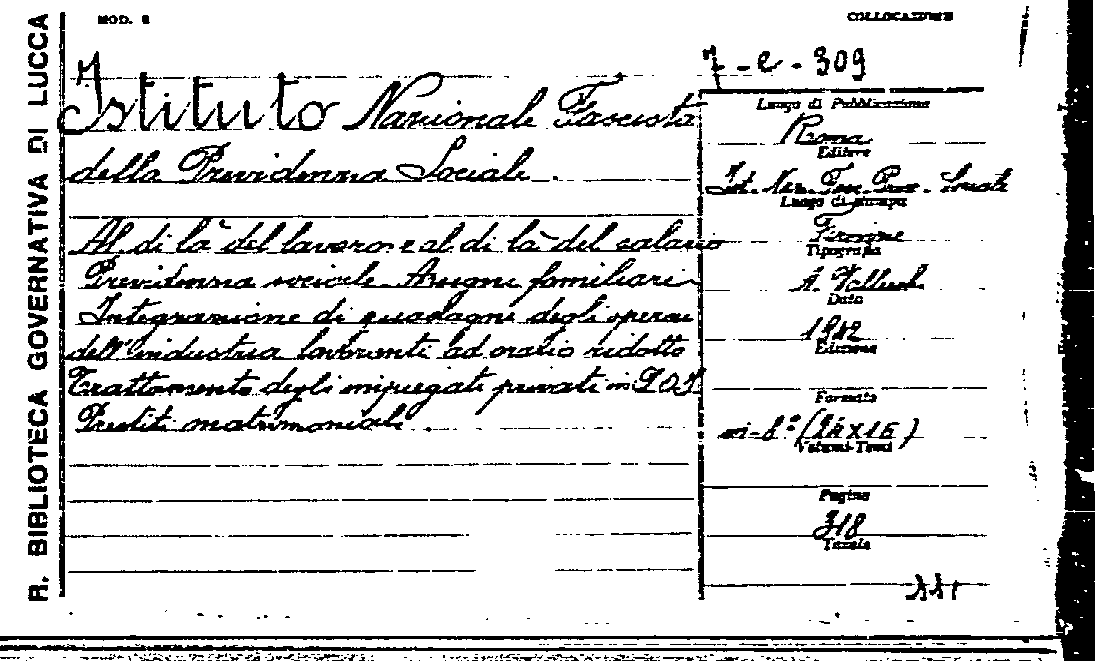 R. BIBLIOTECA GOVERNATIVA DI LUCCA
MOD. 2
COLLOCAZIONE
7-e-309
Istituto Nazionale Fascista
della Previdenza Sociale.
Al di là del lavoro e al di là del salario
Previdenza sociale Assegni familiari
Integrazione di guadagni degli operai
dell'industria lavoranti ad orario ridotto
Trattamento degli impiegati privati in
Prestiti matrimoniali.
Luogo di Pubblicazione
Roma
Editore
Ist. Naz. Fasc. Prev. Sociale
Luogo di stampa
Firenze
Tipografia
A. Vallecchi
Data
1942
Edizione
Formato
in-8° (24x16)
Volumi-Tomi
Pagine
318
Tavole